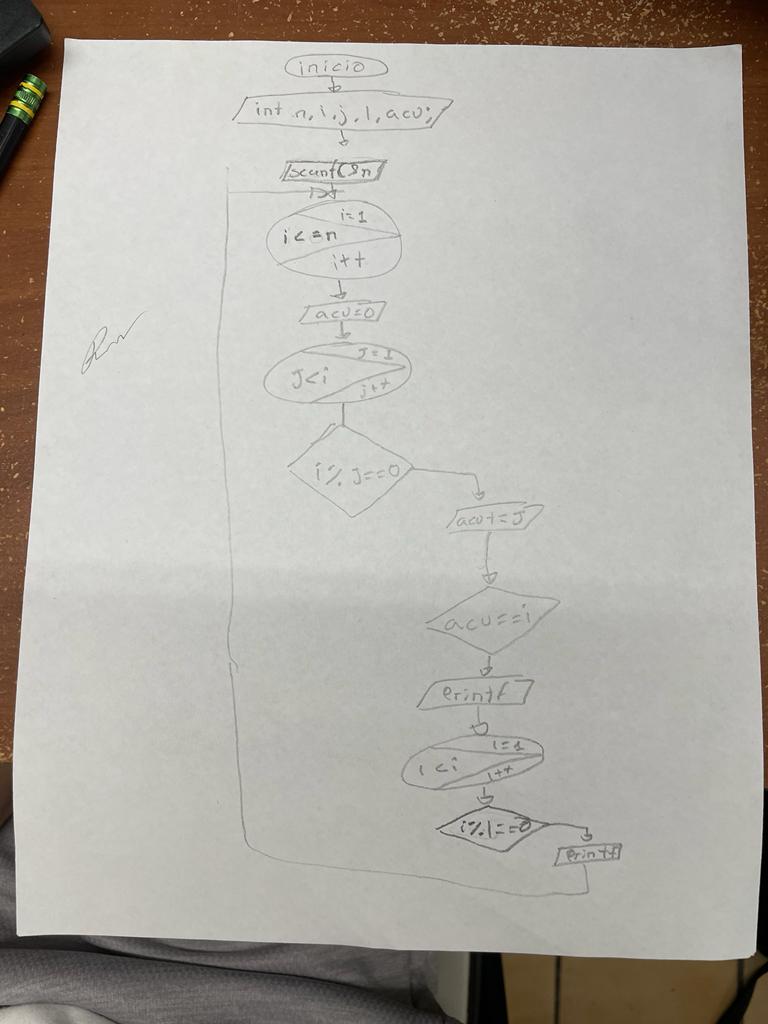 inicio
int n, i, j, l, acu;
scanf(&n
i=1
i<=n
i++
acu=0
J=1
J<i
j++
i% J==0
acu+=J
acu==i
Printf
l=1
l<i
l++
i%l==0
Printf